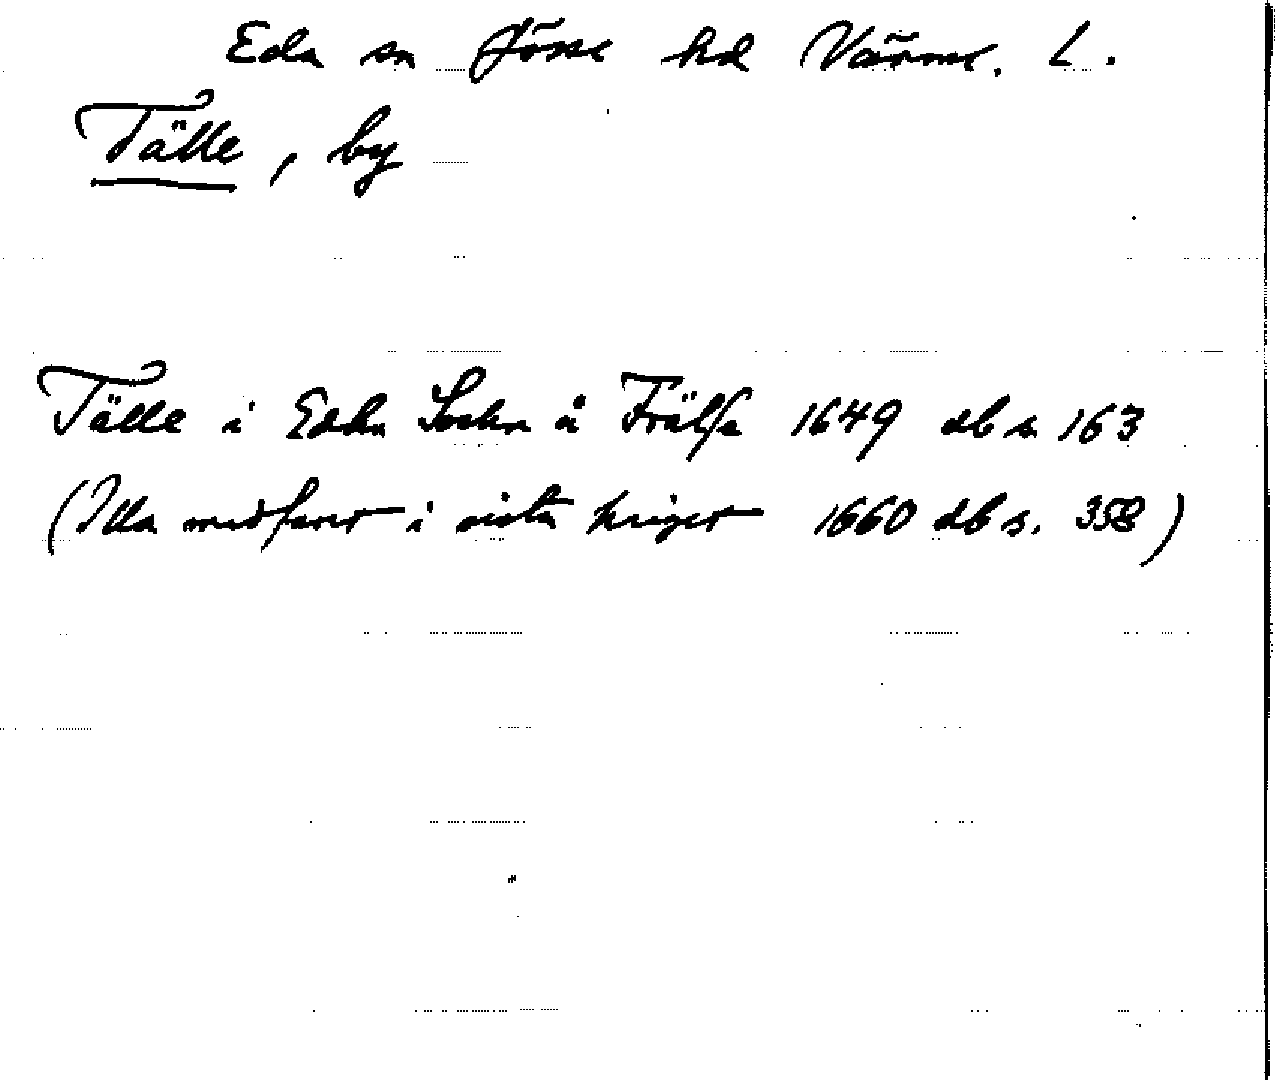 Eda sn Jösse hd Värml. L.
Tälle, by
Tälle i Edha Sochn å Frälse 1649 db s. 163
(Illa medfaret i sista kriget 1660 db s. 358)